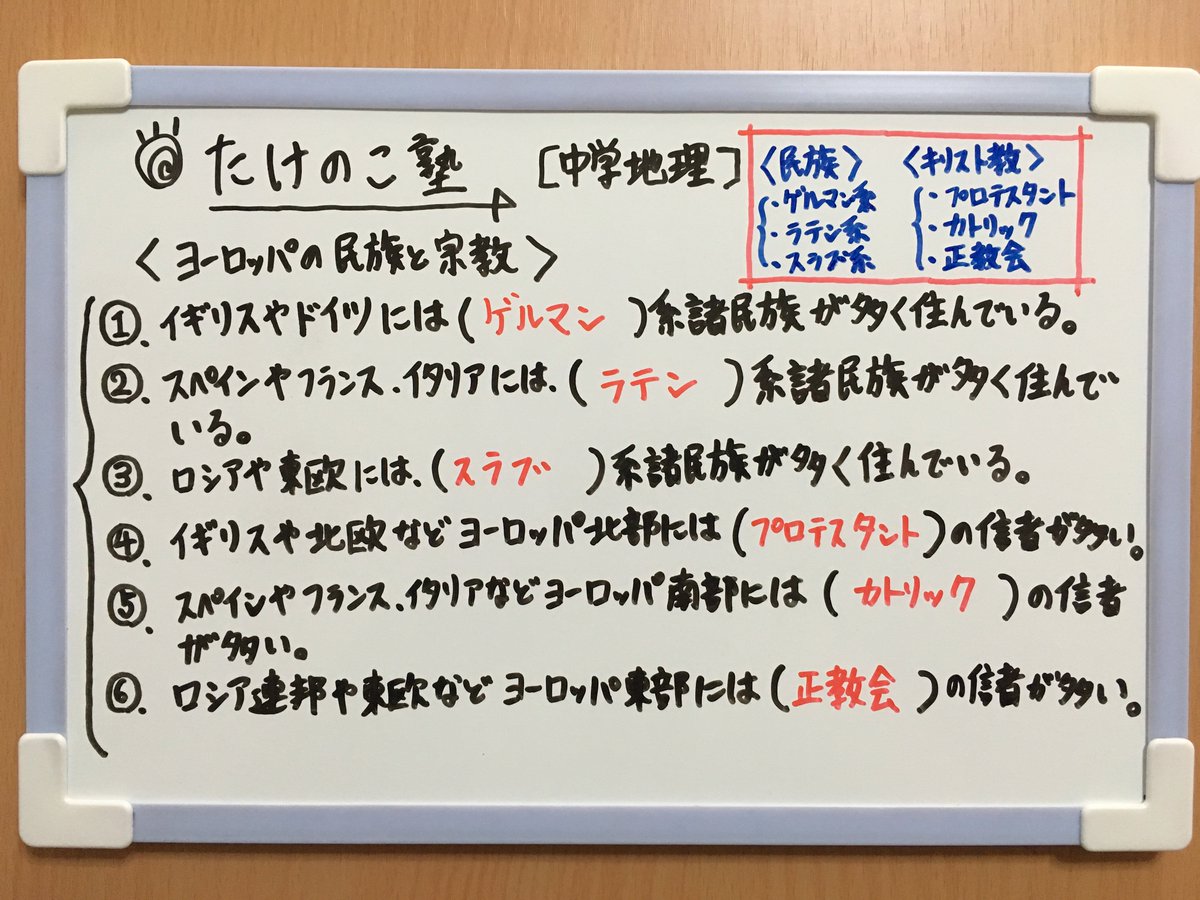 たけのこ塾 [中学地理]
〈民族〉
・ゲルマン系
・ラテン系
・スラブ系
〈キリスト教〉
・プロテスタント
・カトリック
・正教会
〈ヨーロッパの民族と宗教〉
①. イギリスやドイツには(ゲルマン)系諸民族が多く住んでいる。
②. スペインやフランス、イタリアには、(ラテン)系諸民族が多く住んで
いる。
③. ロシアや東欧には、(スラブ)系諸民族が多く住んでいる。
④. イギリスや北欧などヨーロッパ北部には(プロテスタント)の信者が多い。
⑤. スペインやフランス、イタリアなどヨーロッパ南部には(カトリック)の信者
が多い。
⑥. ロシア連邦や東欧などヨーロッパ東部には(正教会)の信者が多い。